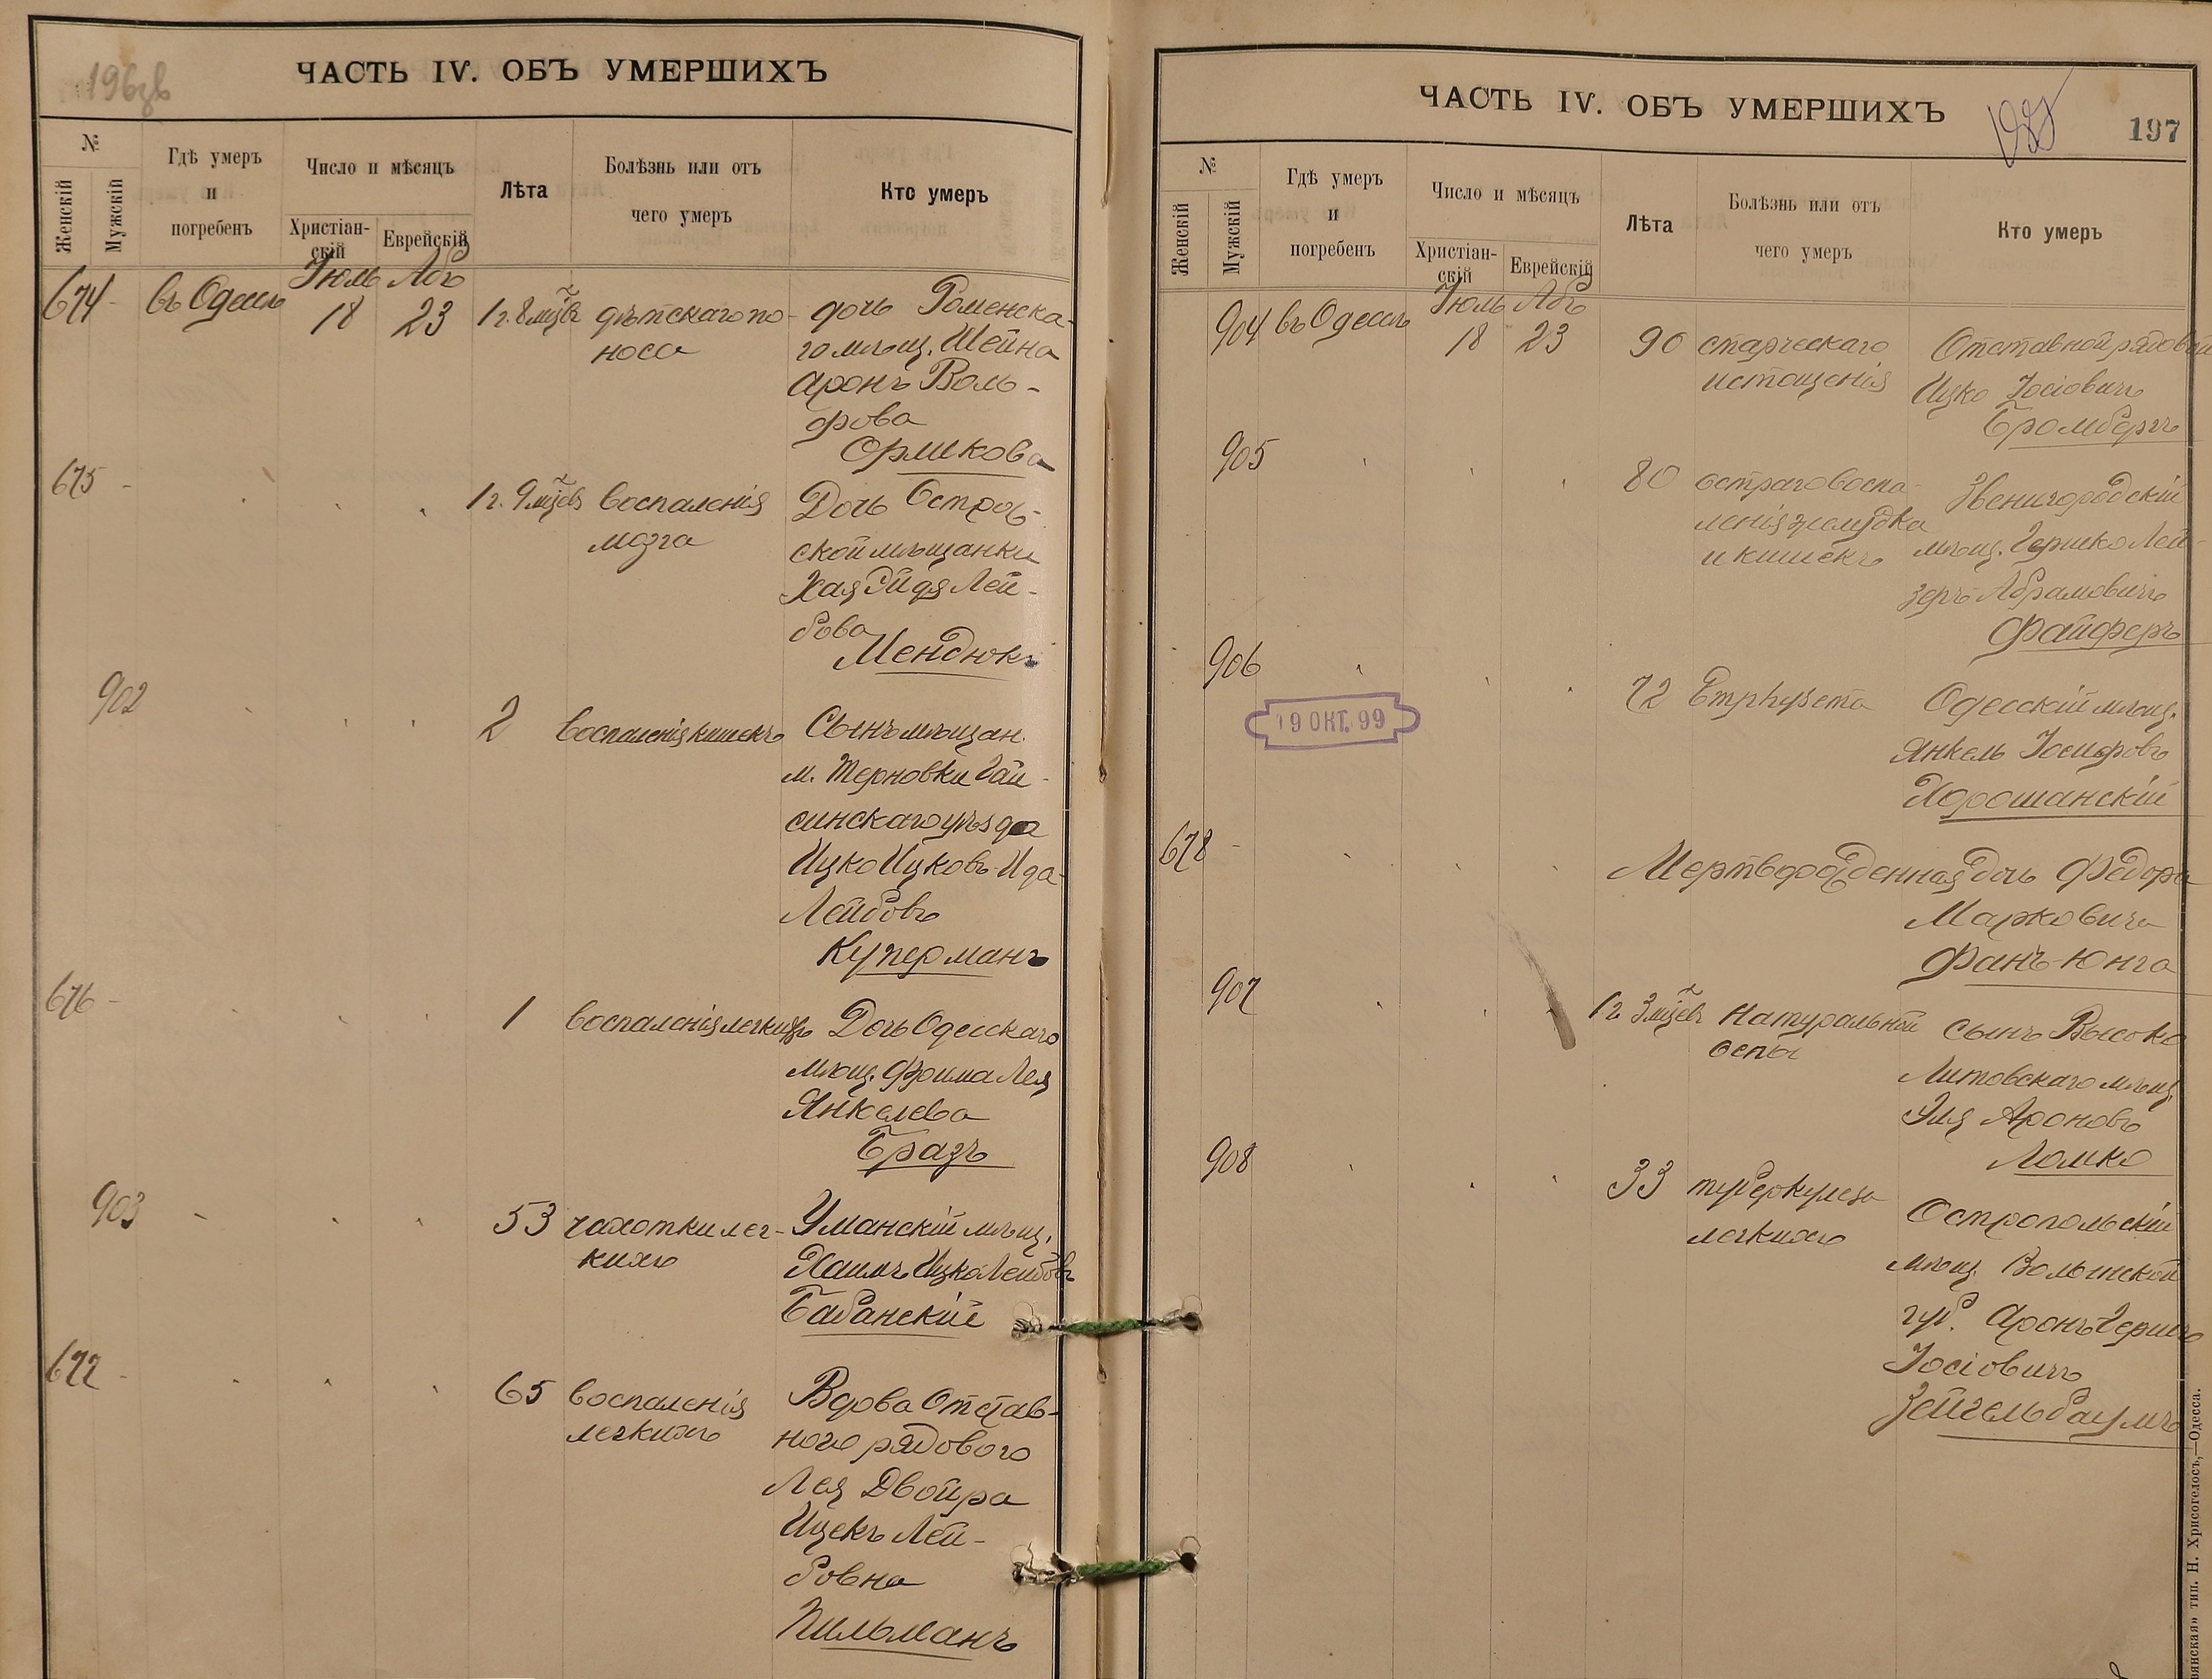 196зв
ЧАСТЬ IV. ОБЪ УМЕРШИХЪ
№
Женскій
Мужскій
Гдѣ умеръ
и
погребенъ
Число и мѣсяцъ
Христіан-
скій
Еврейскій
Лѣта
Болѣзнь или отъ
чего умеръ
Кто умеръ
Іюль Абъ
674 - въ Одессѣ 18 23 1 г. 8 мѣ̃цѣ дѣтскаго по-
носа
дочь Роменска-
го мѣщ. Шейна
Аронъ Воль-
фова
Орликова
675 - 1 г. 9 мѣ̃цевъ воспаленія
мозга
Дочь Остров-
ской мѣщанки
Хая Эйдя Лей-
бова
Мендюкъ
902 2 воспаленія кишекъ
Сынъ мѣщан.
м. Терновки Гай-
синскаго уѣзда
Ицко Ицковъ-Ида-
Лейбовъ
Куперманъ
676 - 1 воспаленія легкихъ
Дочь Одесскаго
мѣщ. Фрима Лея
Янкелева
Бразъ
903 - 53 чахотки лег-
кихъ
Уманскій мѣщ.
Хаимъ Ицко Лейбовъ
Бабанскій
677 - 65 воспаленія
легкихъ
Вдова Отстав-
ного рядового
Лея Двойра
Ицекъ Лей-
бовна
Пильманъ
ЧАСТЬ IV. ОБЪ УМЕРШИХЪ
197
№
Женскій
Мужскій
Гдѣ умеръ
и
погребенъ
Число и мѣсяцъ
Христіан-
скій
Еврейскій
Лѣта
Болѣзнь или отъ
чего умеръ
Кто умеръ
Іюль Абъ
904 въ Одессѣ 18 23 90 старческаго
истощенія
Отставной рядовой
Ицко Іосіовичъ
Бромбергъ
905 80 остраго воспа-
ленія желудка
и кишекъ
Звенигородскій
мѣщ. Гершко Лей-
зеръ Абрамовичъ
Файферъ
906 72
Одесскій мѣщ.
Янкель Іосифовъ
Хорошанскій
19 ОКТ. 99
678 - Мертворожденная дочь Федора
Марковича
Фанъ-Юнга
907 1 г. 3 мѣ̃цевъ Натуральной
оспы
сынъ Высоко
Литовскаго мѣщ.
Эля Ароновъ
Ломко
908 33 туберкулеза
легкихъ
Остропольскій
мѣщ. Волынской
губ. Аронъ Гершъ
Іосіовичъ
Зейгельбаумъ
тип. Н. Хрисогелосъ,—Одесса.